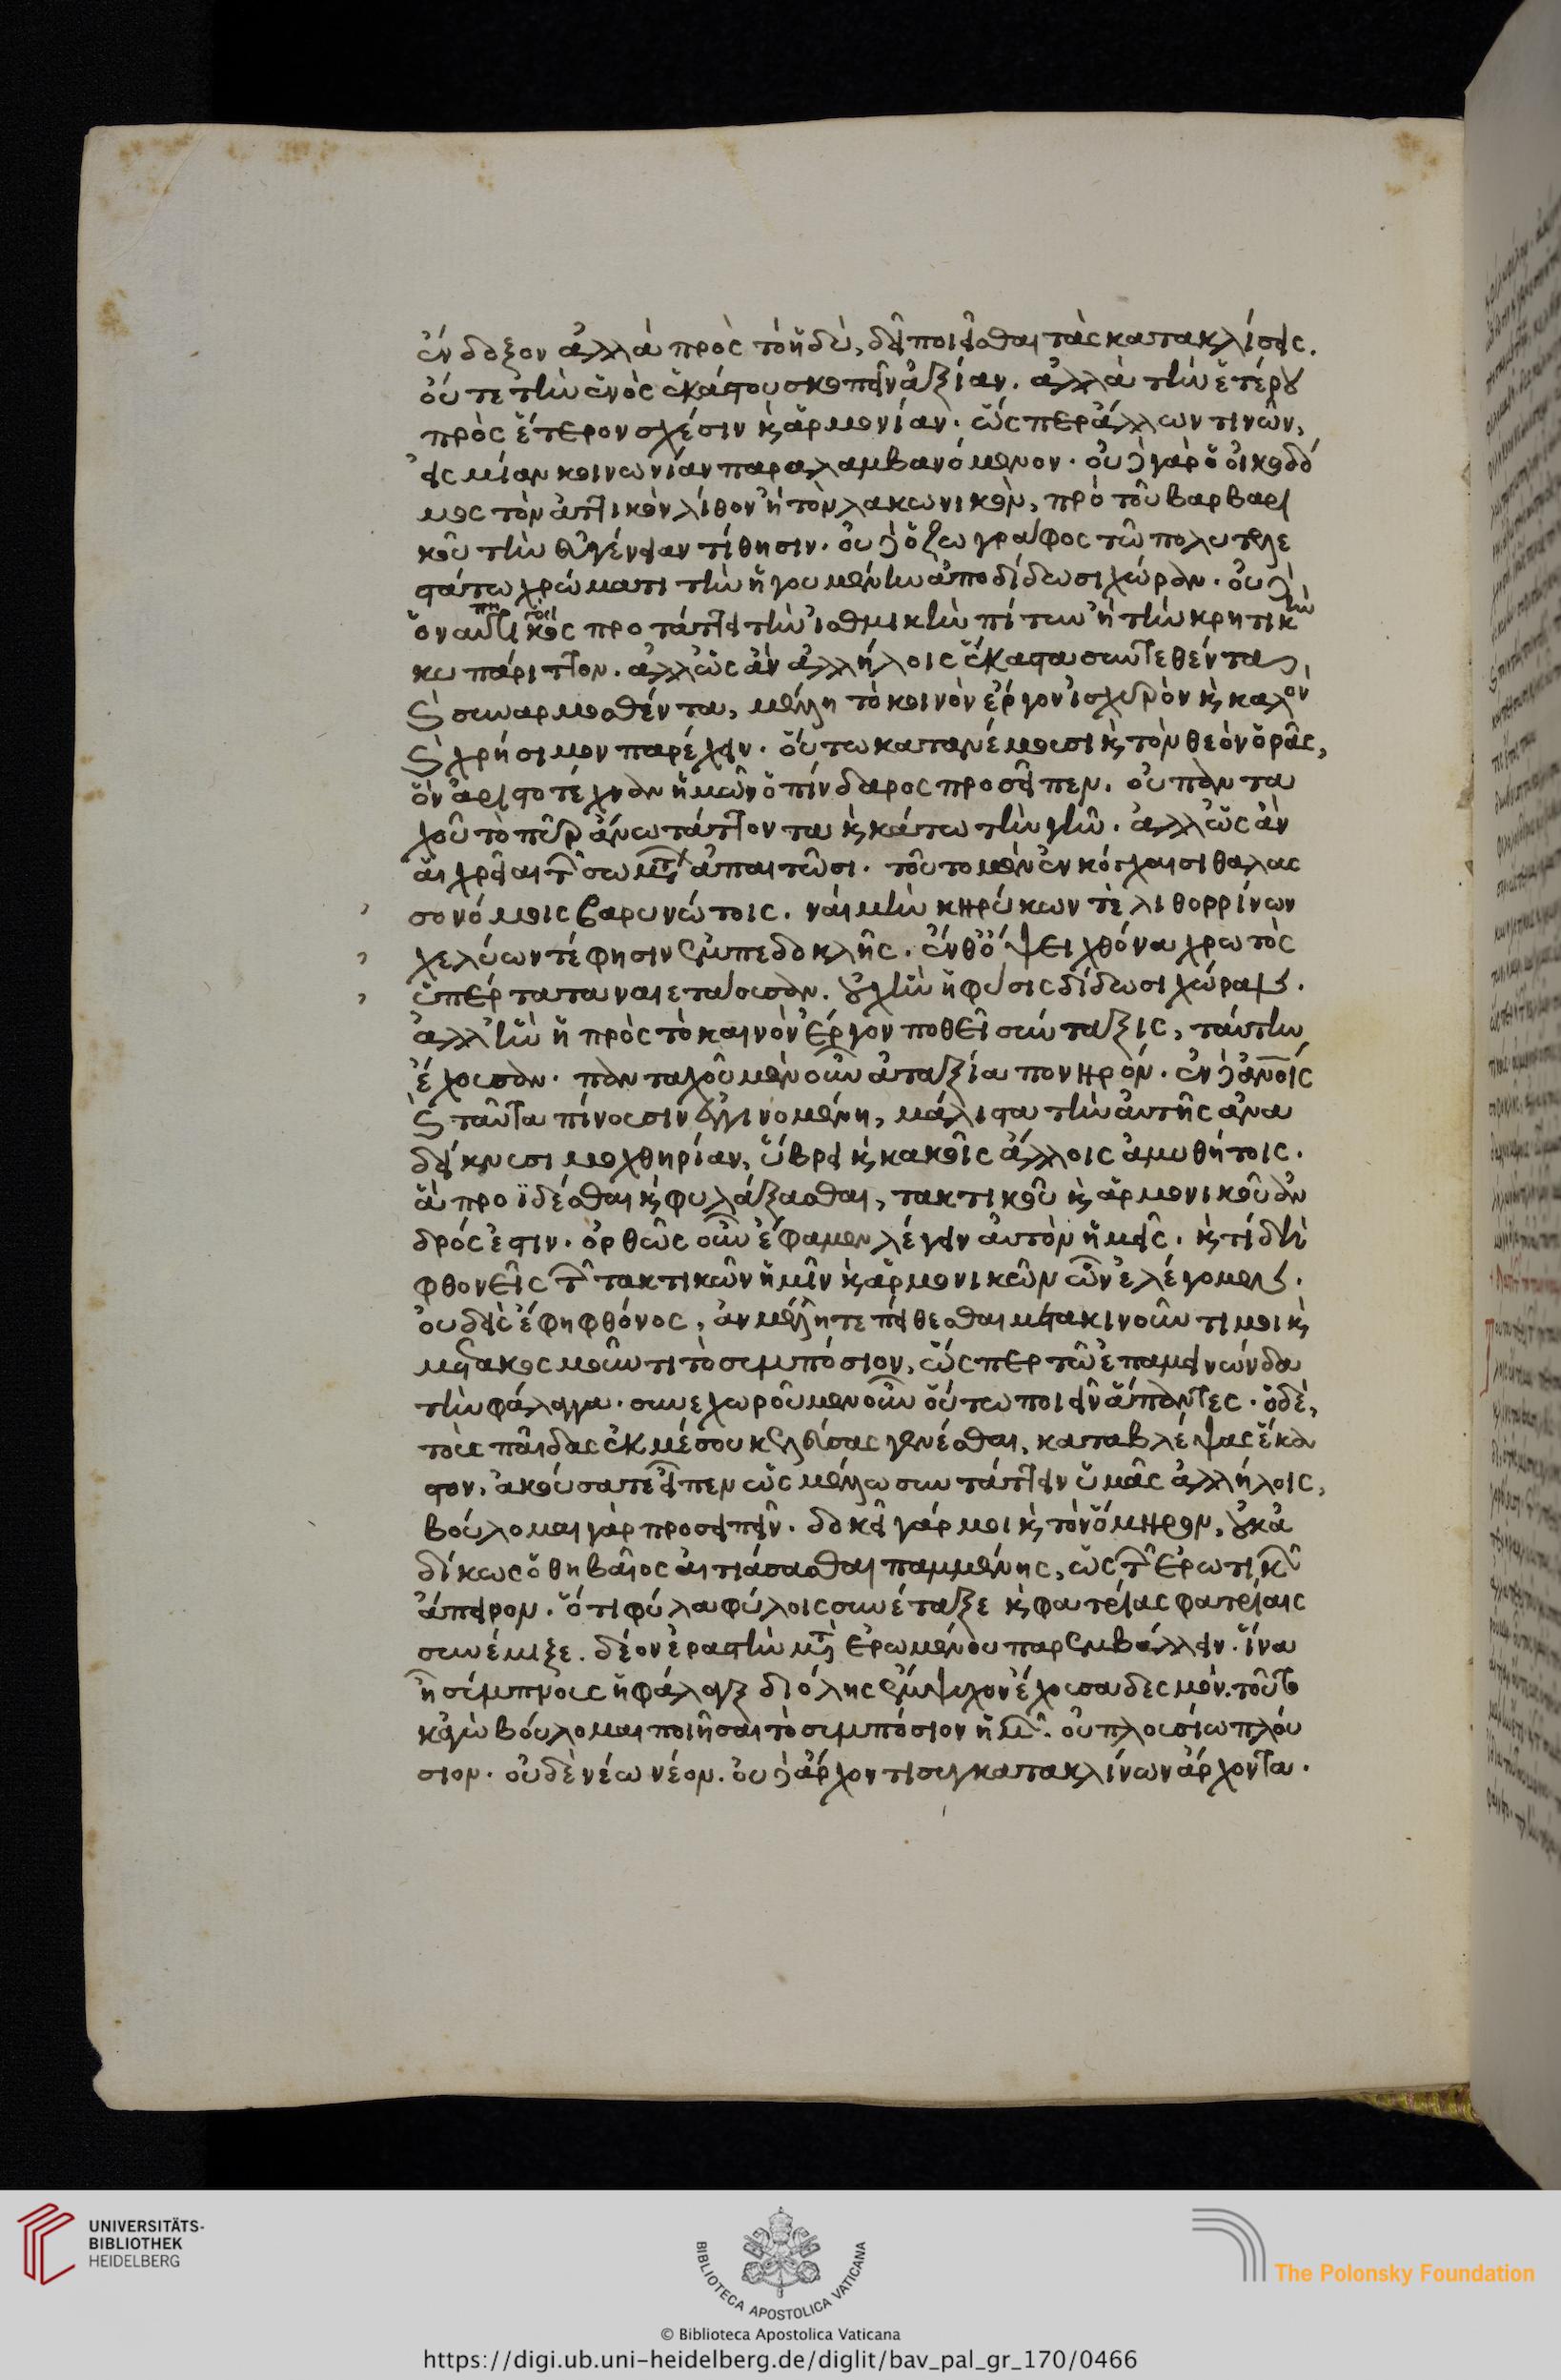 ἔνδοξον ἀλλὰ πρὸς τὸ ἡδὺ, δεῖ ποιεῖσθαι τὰς κατακλίσεις.
οὔτε τὴν ἑνὸς ἑκάστου σκοπεῖν ἀξίαν. ἀλλὰ τὴν ἑτέρου
πρὸς ἕτερον σχέσιν καὶ ἁρμονίαν. ὥσπερ ἄλλων τινῶν,
εἰς μίαν κοινωνίαν παραλαμβανόμενον. οὐδὲ γὰρ ὁ οἰκοδό
μος τὸν ἀττικὸν λίθον ἢ τὸν λακωνικὸν, πρὸ τοῦ βαρβαρι
κοῦ τὴν εὐγένειαν τίθησιν. οὐδὲ ὁ ζωγράφος τῶ πολυτελε
στάτω χρώματι τὴν ἡγουμένην ἀποδίδωσι χώραν. οὐδὲ
ὁ ναυτικὸς προτάττει τὴν ἰσθμικὴν πίτυν ἢ τὴν κρητικὴν
κυπάριττον. ἀλλ' ὡς ἂν ἀλλήλοις ἕκαστα συντεθέντα,
καὶ συναρμοσθέντα, μέλλη τὸ κοινὸν ἔργον ἰσχυρὸν καὶ καλὸν
καὶ χρήσιμον παρέχειν. οὕτω κατανέμουσι καὶ τὸν θεὸν ὁρᾶς,
ὃν ἀριστοτέχναν ἡμῶν ὁ πίνδαρος προσεῖπεν. οὐ παντα
χοῦ τὸ πῦρ ἄνω τάττοντα καὶ κάτω τὴν γῆν. ἀλλ' ὡς ἂν
αἱ χρεῖαι τῶν σωμάτων ἀπαιτῶσι. τοῦτο μὲν ἐν κόγχαισι θαλασ
σονόμοις βαρυνώτοις. ναὶ μὴν κηρύκων τὲ λιθορρίνων
χελύων τέ φησιν ἐμπεδοκλῆς. ἔνθ' ὄψει χθόνα χρωτὸς
ὑπέρτατα ναιετάουσαν. οὐχ ἣν ἡ φύσις δίδωσι χώραν.
ἀλλ' ἣν ἡ πρὸς τὸ καινὸν ἔργον ποθεῖ σύνταξις, ταύτην
ἔχουσαν. πανταχοῦ μὲν οὖν ἀταξία πονηρόν. ἐν δὲ ἀνοις
καὶ ταῦτα πίνουσιν ἐγγινομένη, μάλιστα τὴν αὐτῆς ἀνα
δείκνυσι μοχθηρίαν, ὕβρει καὶ κακοῖς ἄλλοις ἀμυθήτοις.
ἃ προϊδέσθαι καὶ φυλάξασθαι, τακτικοῦ καὶ ἁρμονικοῦ ἀν
δρός ἐστιν. ὀρθῶς οὖν ἔφαμεν λέγειν αὐτὸν ἡμεῖς. καὶ τί δὴ
φθονεῖς τῶν τακτικῶν ἡμῖν καὶ ἁρμονικῶν ὧν ἐλέγομεν.
οὐδεὶς ἔφη φθόνος, ἂν μέλλητε πείθεσθαι μετακινοῦντι μοι καὶ
μετακοσμοῦντι τὸ συμπόσιον, ὥσπερ τῶ ἐπαμεινώνδα
τὴν φάλαγγα. συνεχωροῦμεν οὖν οὕτω ποιεῖν ἅπαντες. ὁ δὲ,
τοὺς παῖδας ἐκ μέσου κελεύσας γενέσθαι, καταβλέψας ἕκα
στον, ἀκούσατε εἶπεν ὡς μέλλω συντάττειν ὑμᾶς ἀλλήλοις,
βούλομαι γὰρ προσειπεῖν. δοκεῖ γάρ μοι καὶ τὸν ὅμηρον, οὐκ ἀ
δίκως ὁ θηβαῖος αἰτιάσασθαι παμμένης, ὡς τῶν ἐρωτικῶν
ἄπειρον. ὅτι φύλα φύλοις συνέταξε καὶ φατρίας φατρίαις
συνέμιξε. δέον ἐραστὴν μετὰ ἐρωμένου παρεμβάλλειν. ἵνα
ἦ σύμπνους ἡ φάλαγξ δι' ὅλης ἔμψυχον ἔχουσα δεσμόν. τοῦτο
κἀγὼ βούλομαι ποιῆσαι τὸ συμπόσιον ἡμῶν. οὐ πλουσίω πλού
σιον. οὐδὲ νέω νέον. οὐδὲ ἄρχοντι συγκατακλίνων ἄρχοντα.
UNIVERSITÄTS-
BIBLIOTHEK
HEIDELBERG
BIBLIOTECA APOSTOLICA VATICANA
The Polonsky Foundation
© Biblioteca Apostolica Vaticana
https://digi.ub.uni-heidelberg.de/diglit/bav_pal_gr_170/0466